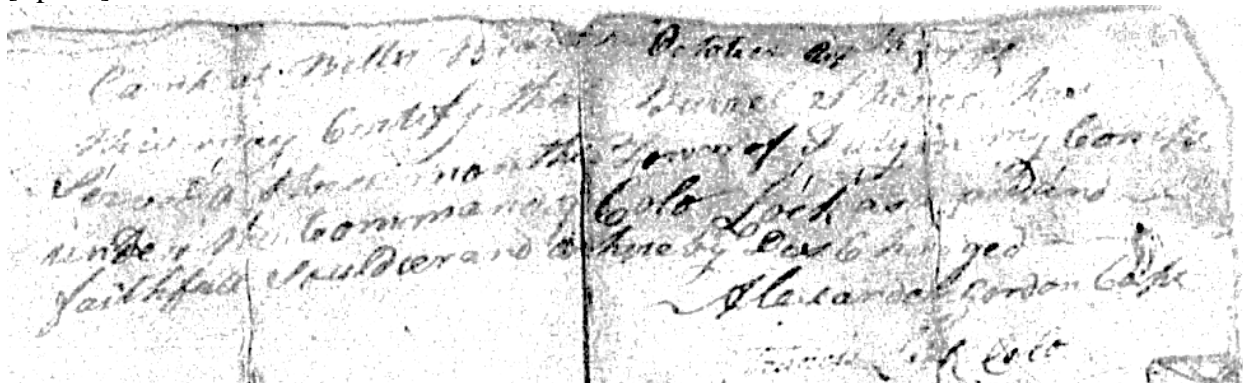 Camp at Wells October
this may Certify that Burrel has
Served three months Tower of Duty in my Com
under the Command of Colo Lock as a good and
faithfull Souldier and is hereby Discharged
Alexander Gordon Capt
Francis Lock Colo